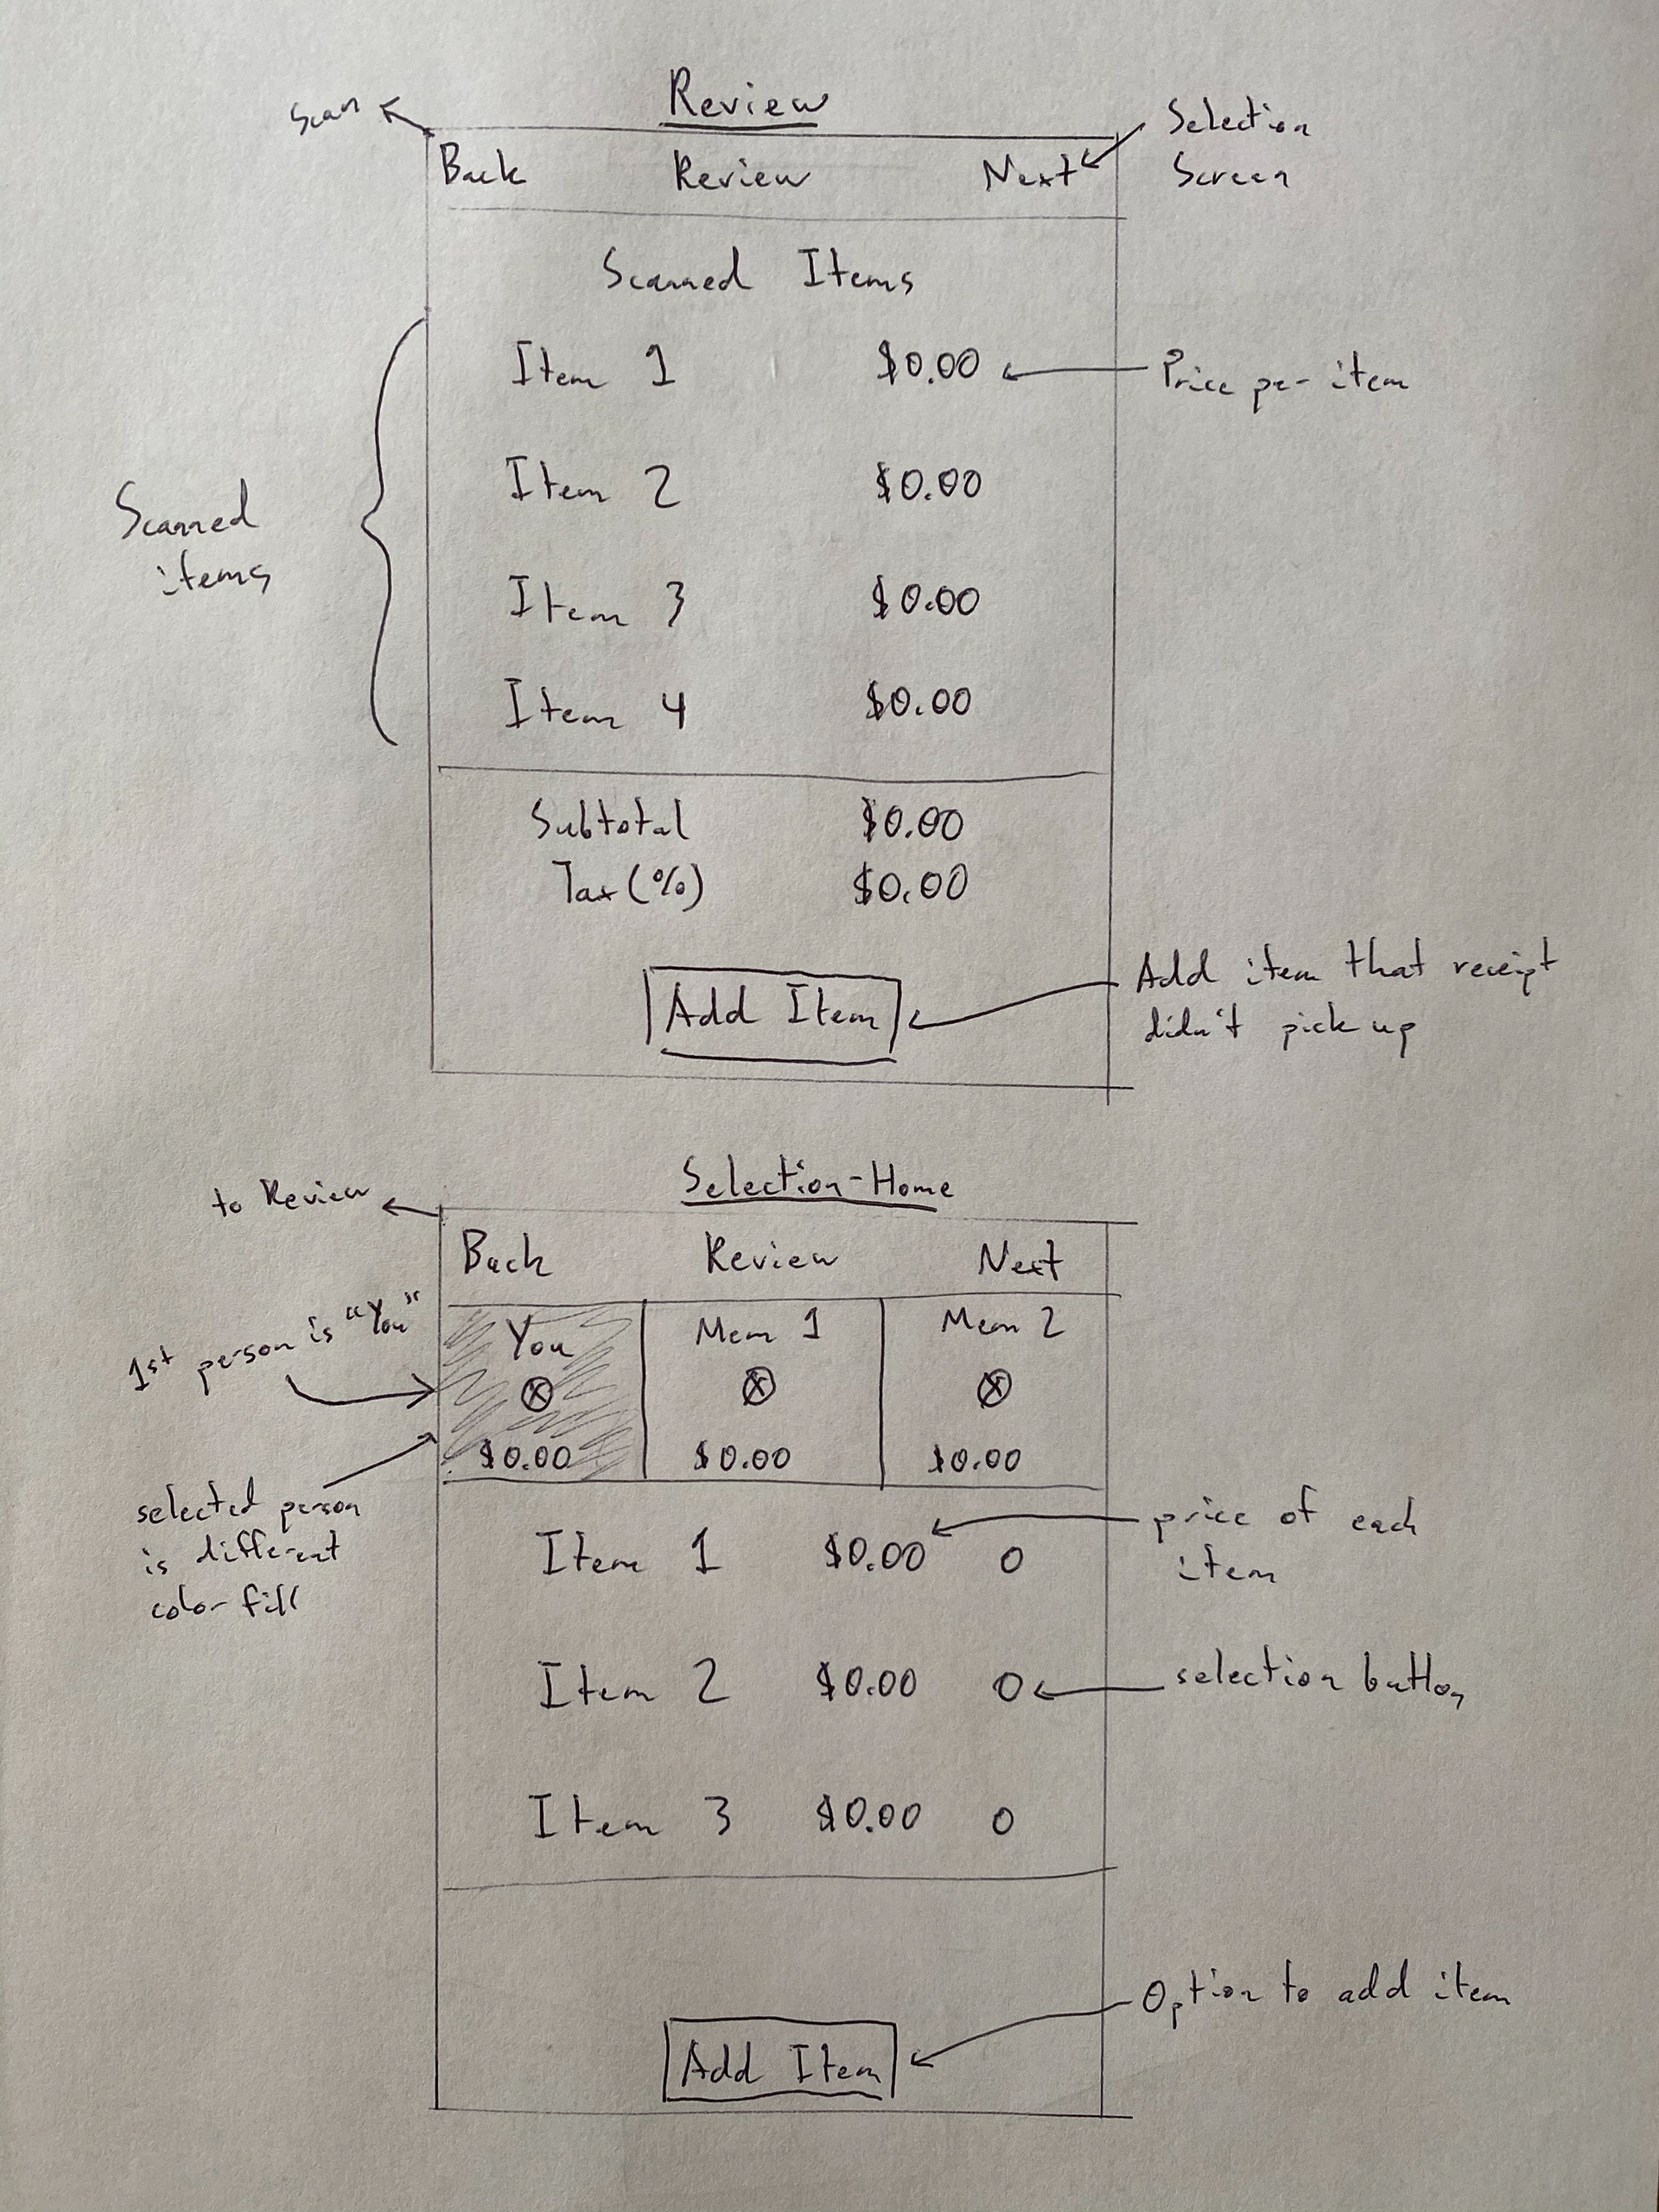 Review
Scan
Selection
Screen
Back Review Next
Scanned Items
Item 1 $0.00
Price per item
Item 2 $0.00
Scanned
items
Item 3 $0.00
Item 4 $0.00
Subtotal $0.00
Tax (%) $0.00
Add Item
Add item that receipt
didn't pick up
Selection-Home
to Review
Back Review Next
1st person is "You"
You Mem 1 Mem 2
ⓧ ⓧ ⓧ
$0.00 $0.00 $0.00
selected person
is different
color fill
Item 1 $0.00 O
price of each
item
Item 2 $0.00 O
selection button
Item 3 $0.00 O
Option to add item
Add Item